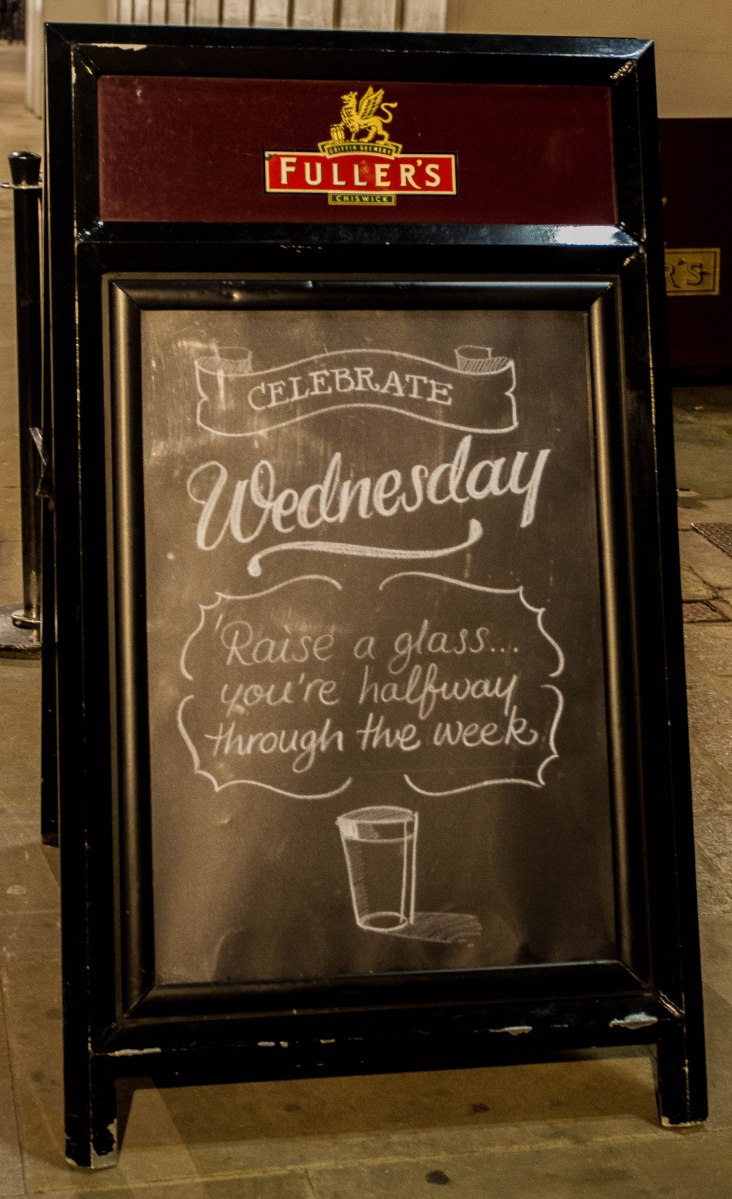 GRIFFIN BREWERY
FULLER'S
CHISWICK
R'S
CELEBRATE
Wednesday
'Raise a glass...
you're halfway
through the week